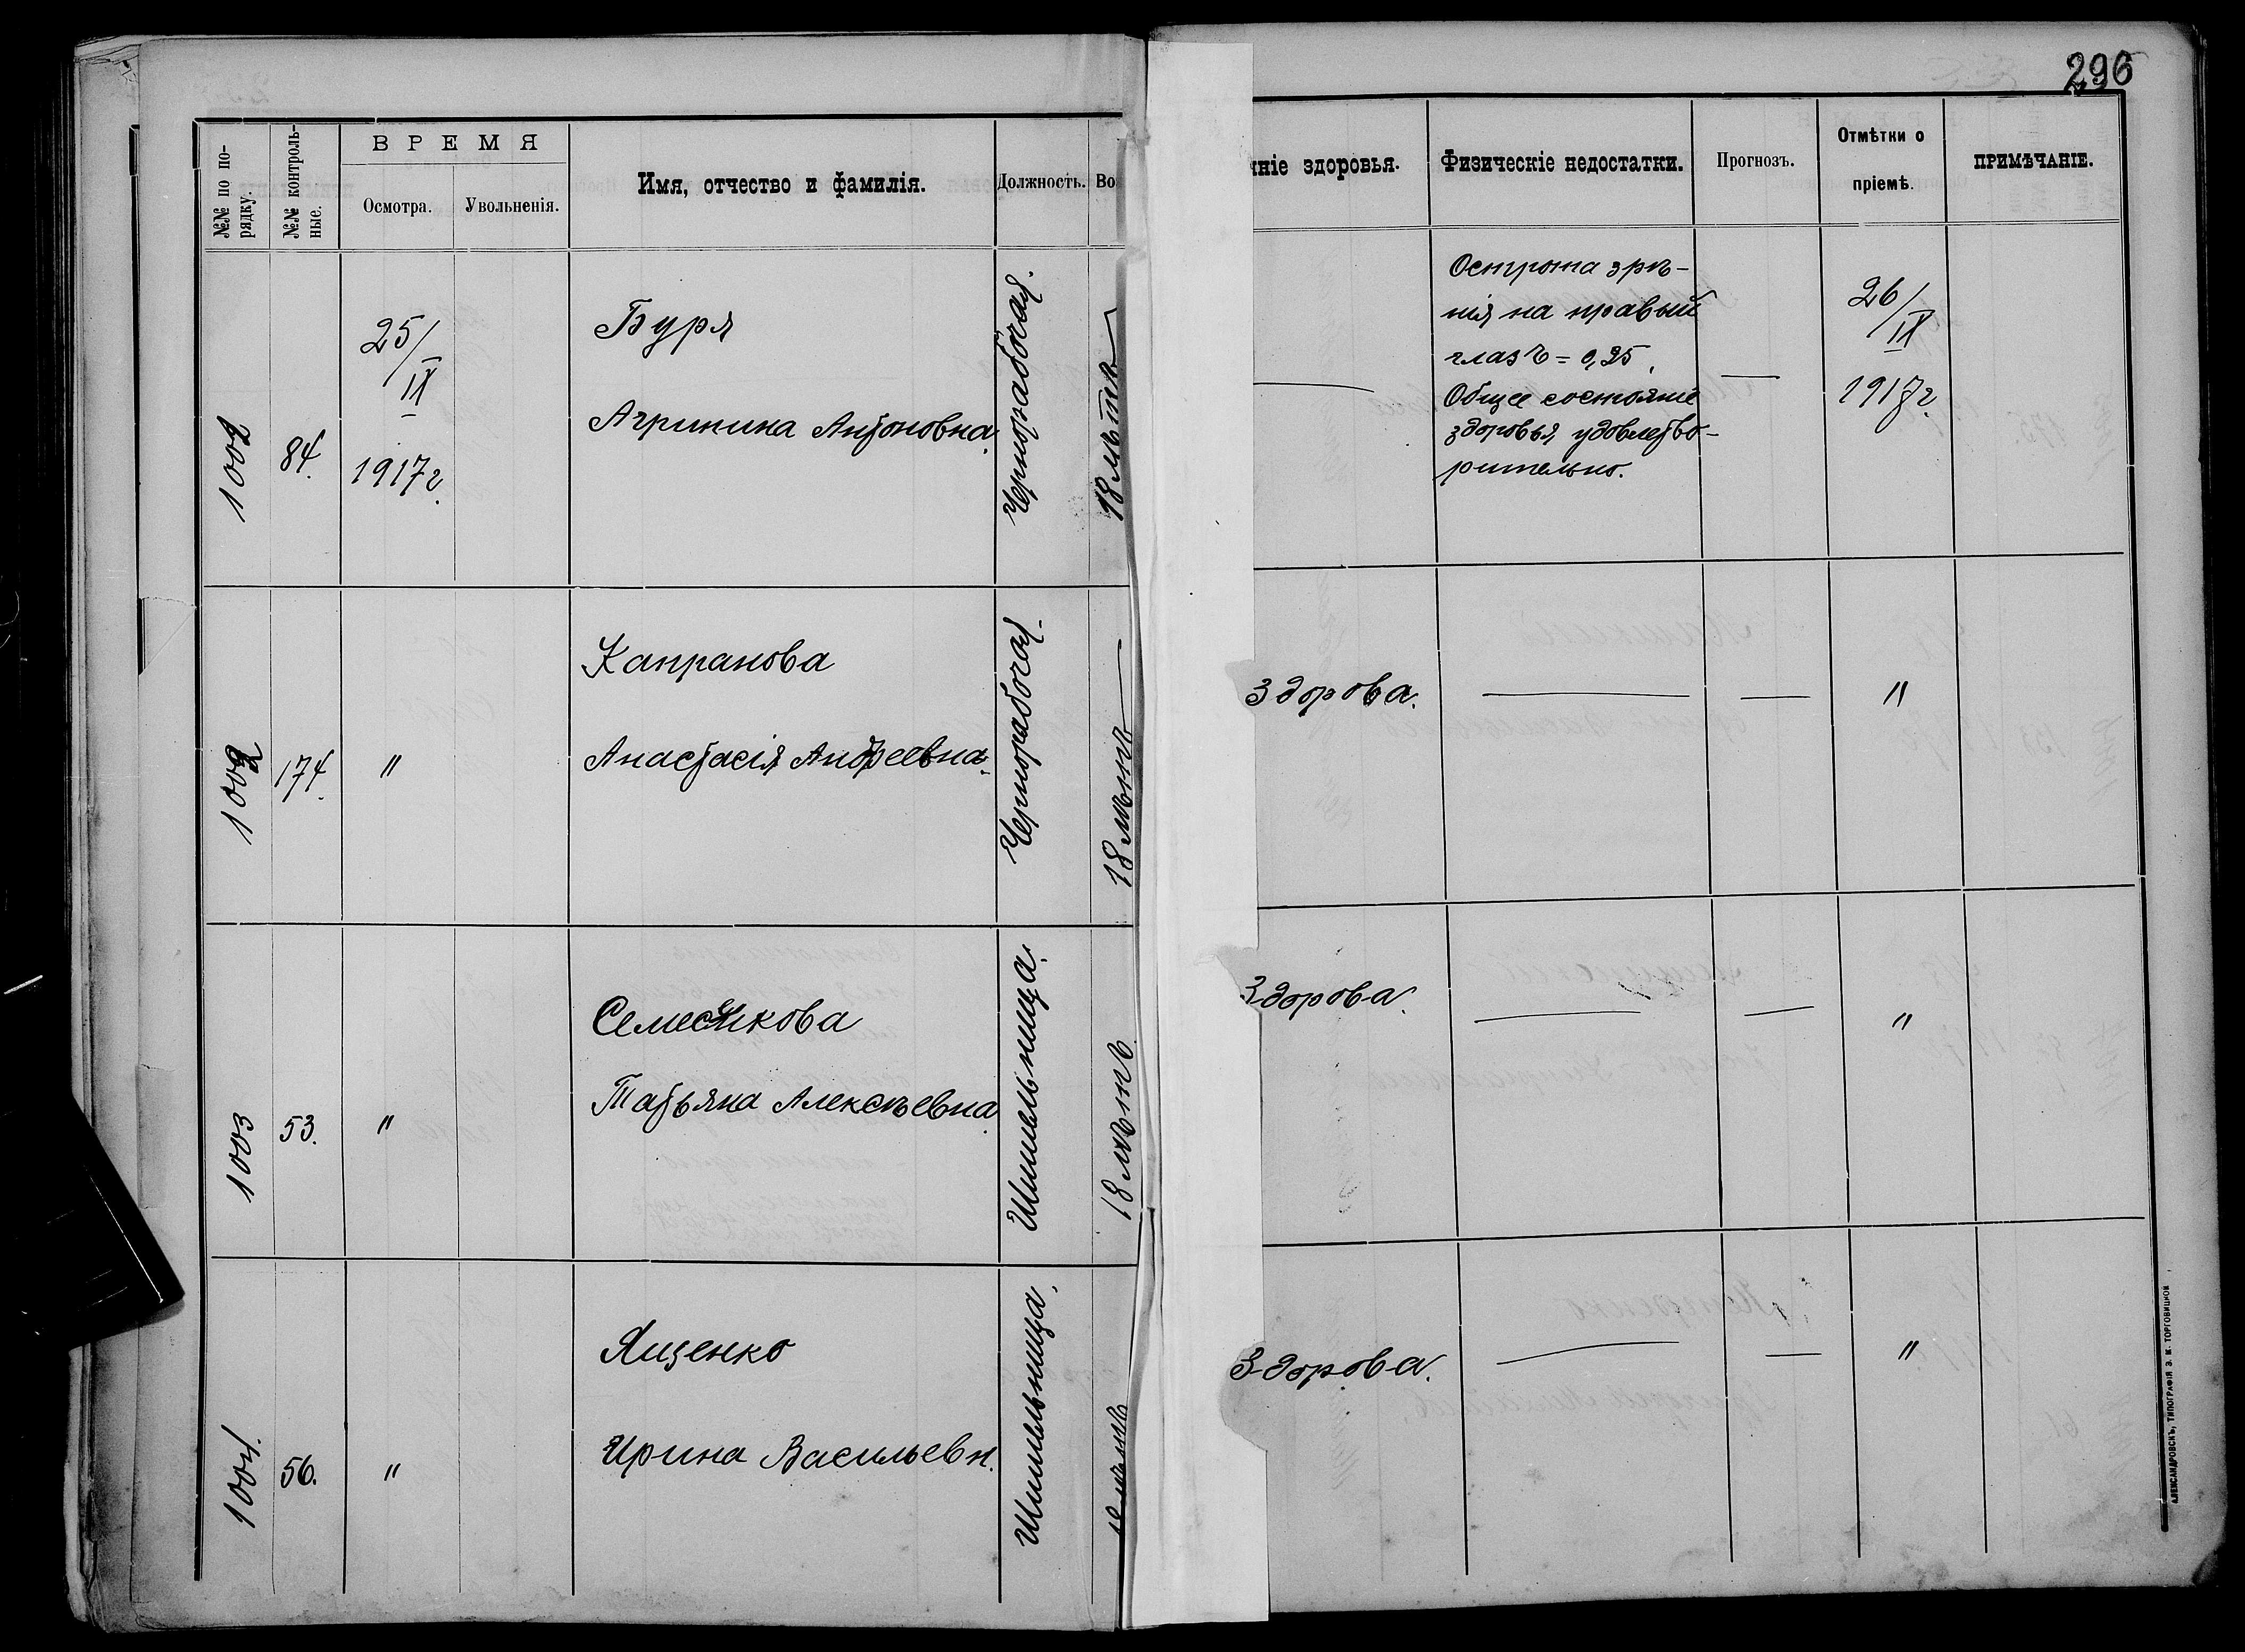 296
№№ по по-
рядку.
№№ контроль-
ные.
ВРЕМЯ
Осмотра.
Увольненія.
Имя, отчество и фамилія.
Должность.
Во
ніе здоровья.
Физическіе недостатки.
Прогнозъ.
Отмѣтки о
пріемѣ.
ПРИМѢЧАНІЕ.
1002
84.
25/IX
1917 г.
Буря
Агрипина Антоновна.
Чернорабочая.
18 лѣтъ
—
Острота зрѣ-
нія на правый
глазъ = 0,25.
Общее состояніе
здоровья удовлетво-
рительно.
—
26/IX
1917 г.
1002
174.
"
Капранова
Анастасія Андреевна.
Чернорабочая.
18 лѣтъ
Здорова.
—
—
"
1003
53.
"
Татьяна Алексѣевна.
Шпильнища.
18 лѣтъ
Здорова.
—
—
"
1004.
56.
"
Ященко
Ирина Васильевн.
Шпильнища.
18 лѣтъ
Здорова.
—
—
"
АЛЕКСАНДРОВСКЪ, ТИПОГРАФІЯ З. М. ТОРГОВИЦКОЙ